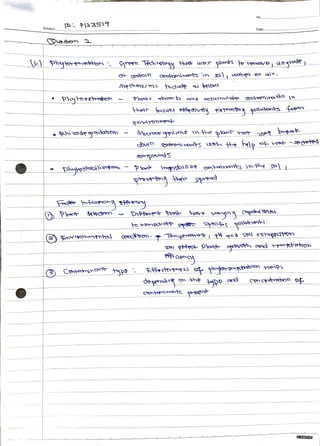 No.
Subject ID: P123519 Date
Question 2
(b) Phytoremediation : Green Technology that uses plants to remove, degrade,
or contain contaminants in soil, water or air.
Mechanisms include as below
• Phytoextraction – Plants absorb and accumulate contaminants in
their tissues effectively extracting pollutants from
environment
• Rhizodegradation – Microorganisms in the plant root zone break
down contaminants with the help of root-secreted
compounds
• Phytostabilization – Plant immobilize contaminants in the soil,
preventing their spread
Factor Influencing efficiency
① Plant selection – Different plant have varying capabilities
to remediate specific pollutants
② Environmental condition: Temperature, pH and soil composition
can affect plant growth and remediation
efficiency
③ Contaminant type : Effectiveness of phytoremediation varies
depending on the type and concentration of
contaminants present